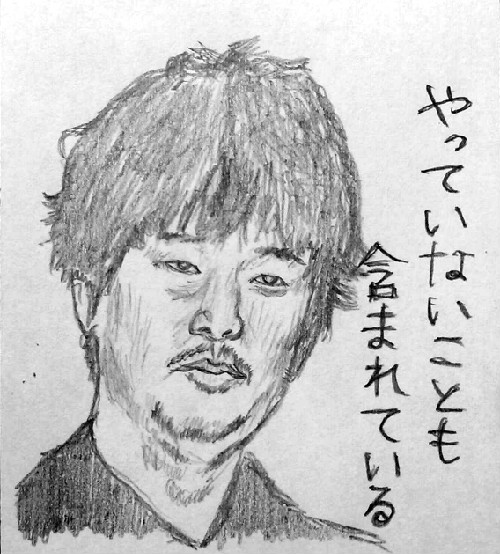 やっていないことも
含まれている